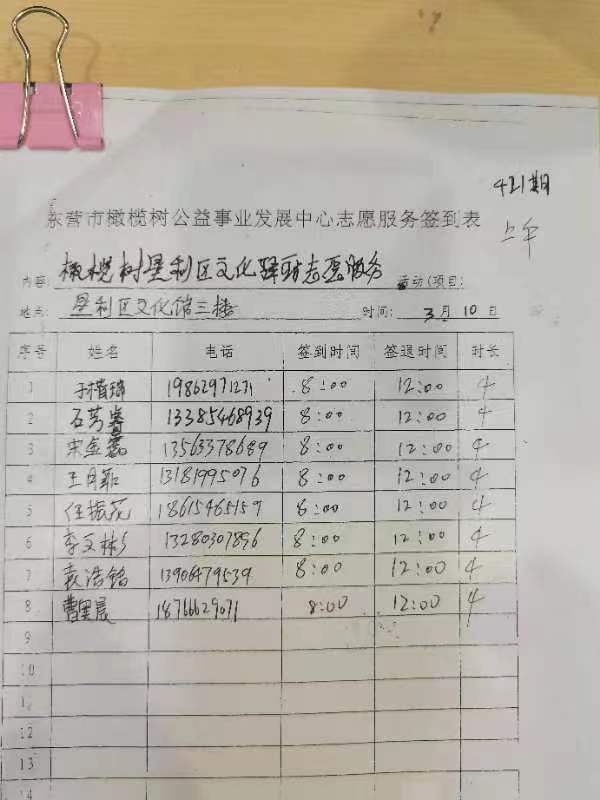 421期
东营市橄榄树公益事业发展中心志愿服务签到表
上午
内容: 橄榄树垦利区文化驿站志愿服务 活动(项目)
地点: 垦利区文化馆三楼 时间: 3月10日
序号 姓名 电话 签到时间 签退时间 时长
1 19862971271 8:00 12:00 4
2 石芳睿 13385468939 8:00 12:00 4
3 宋金磊 13563378689 8:00 12:00 4
4 王月 13181995076 8:00 12:00 4
5 任振花 18615465159 8:00 12:00 4
6 李文彬 13280307896 8:00 12:00 4
7 袁浩铭 13906479539 8:00 12:00 4
8 曹 晨 18766629071 8:00 12:00 4
9
10
12
13